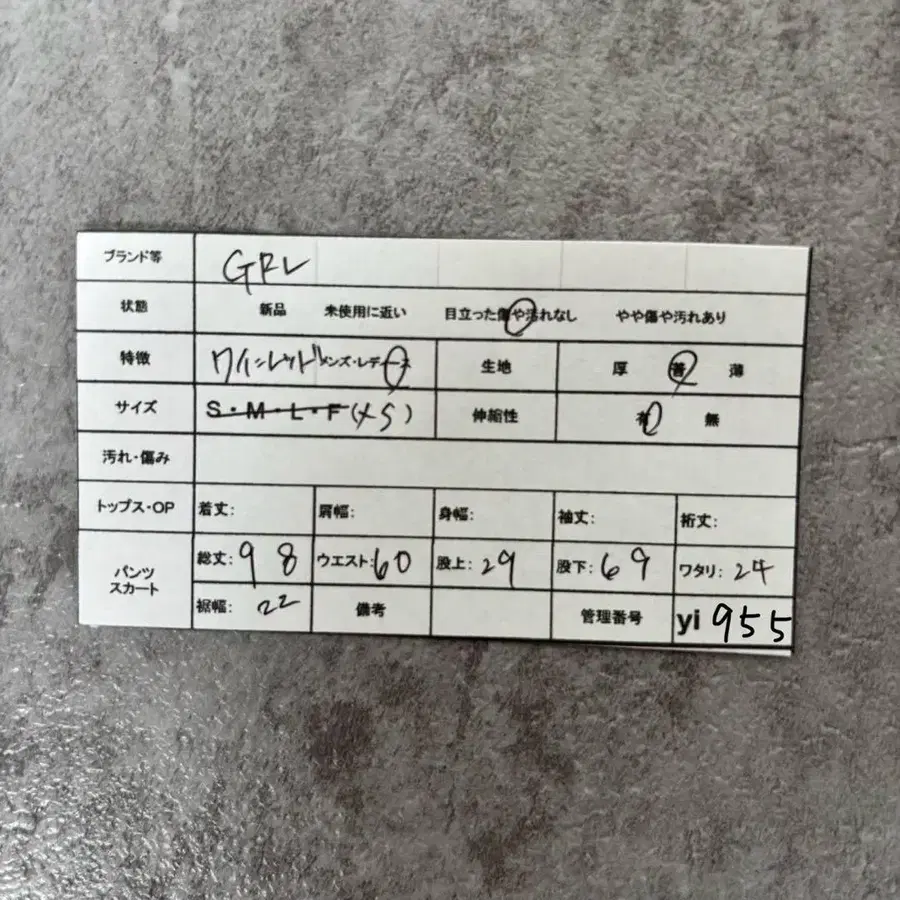 ブランド等 GRL
状態 新品 未使用に近い 目立った傷や汚れなし やや傷や汚れあり
特徴 ワインレッド メンズ・レディース 生地 厚 普 薄
サイズ S・M・L・F (XS) 伸縮性 有 無
汚れ・傷み
トップス・OP 着丈: 肩幅: 身幅: 袖丈: 裄丈:
パンツ スカート 総丈: 98 ウエスト: 60 股上: 29 股下: 69 ワタリ: 24
裾幅: 22 備考 管理番号 yi 955